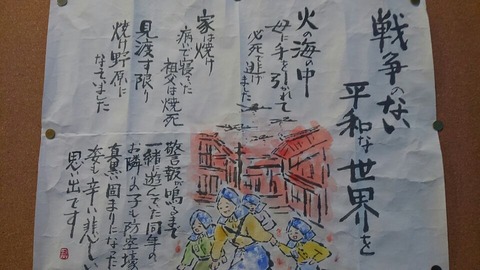 戦争のない
平和な世界を
火の海の中
母に手を引かれて
必死で逃げました
家は焼け
病いで寝てた
祖父は焼死
見渡す限り
焼け野原に
なっていました
警報が鳴るまで
一緒に遊んでいた同年の
お隣りの子も防空壕で
真黒い固まりになった
姿も辛い悲しい
思い出です